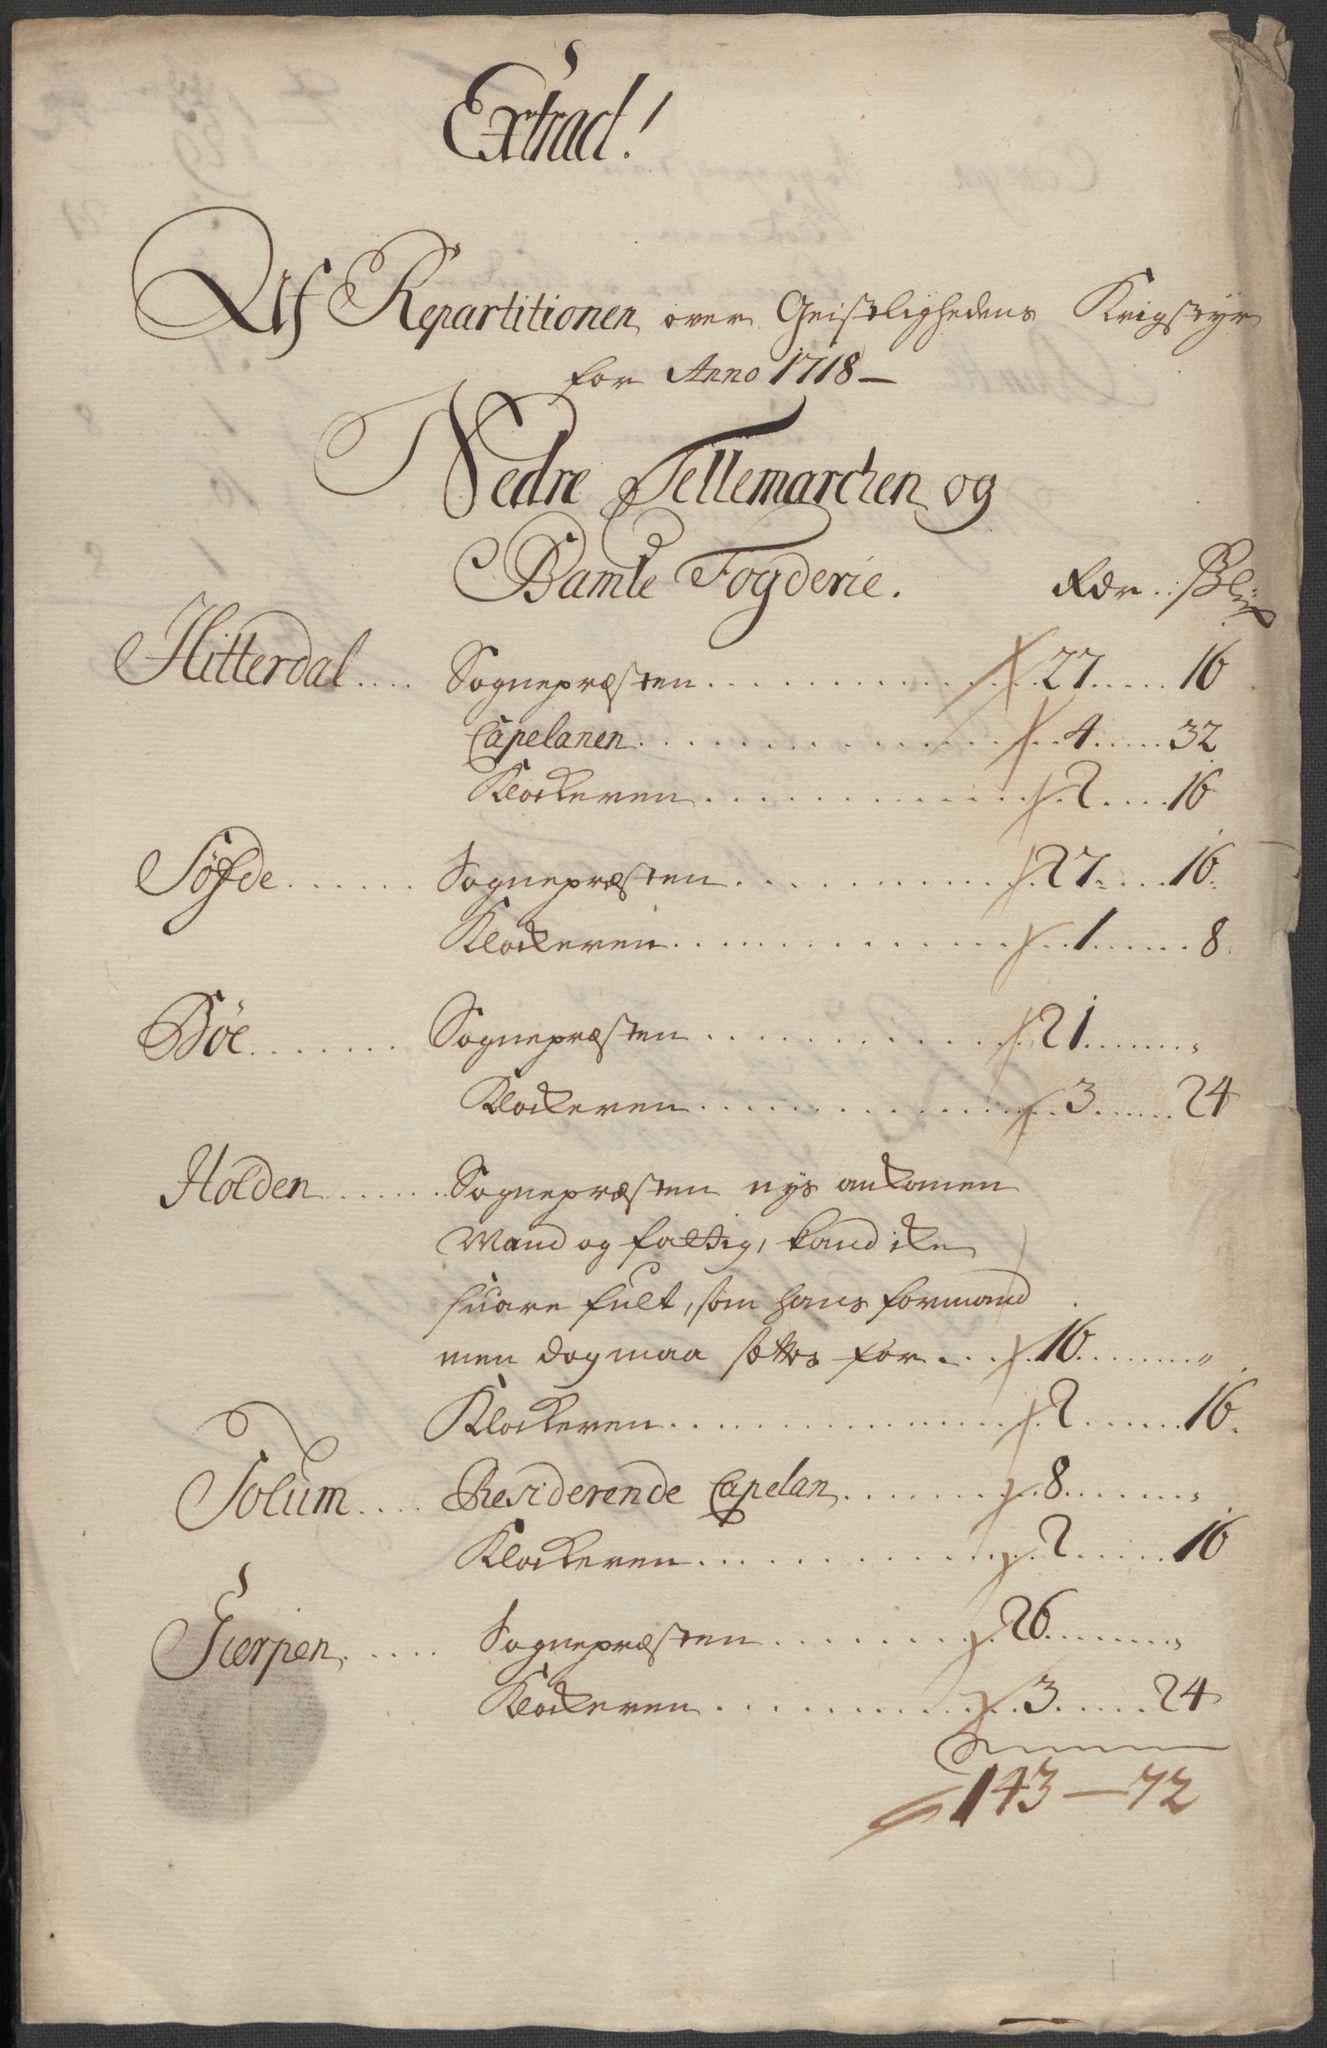 Extract!
Af Repartitionen over Geistlighedens Krigstyr
for Anno 1718 —
Nedre Tellemarchen og
Bamle Fogderie. Rdr. ß
Hitterdal .... Sognepræsten ............ 27 ..... 16
Capelanen ............ 4 ..... 32
Klockeren ............ 2 ..... 16
Søfde ...... Sognepræsten ............ 27 ..... 16
Klockeren ............ 1 ..... 8
Bøe ....... Sognepræsten ............ 21 ..... "
Klockeren ............ 3 ..... 24
Holden ...... Sognepræsten nys ankomen
Mand og fattig, kand iche
suare fult, som hans formand
men dog maa sættes for ... 16 ..... "
Klockeren ............ 2 ..... 16
Solum .... Residerende Capelan ....... 8 ..... "
Klockeren ............ 2 ..... 16
Gierpen ..... Sognepræsten ......... 26 ..... "
Klockeren ............ 3 ..... 24
143 — 72